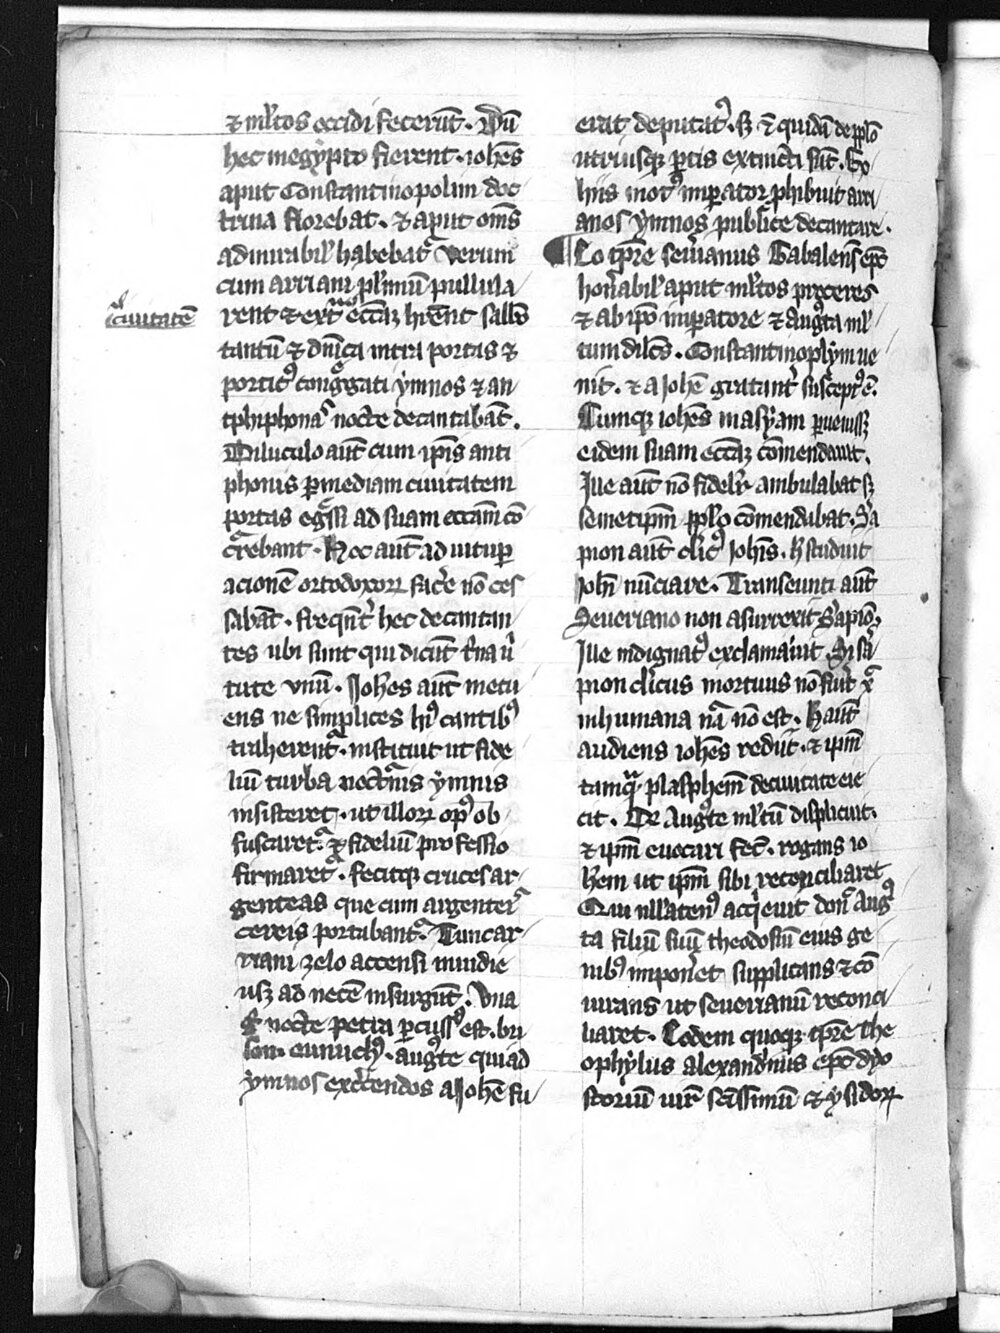 ⁊ ml̓tos occidi fecerūt. Dū
hec in egypto fierent. ioh̄es
aput Constantinopolim doc
trina florebat. ⁊ aput om̄s
admirabil̓ habebat᷑. Verum
cum arriani pl̓imū pullula
rent ⁊ ext᷑ ecc̄az
cīuitatē
tantū ⁊ dn̄ica intra portas ⁊
portic᷒ congͣgati ymnos ⁊ an
tyhiphonas nocte decantabāt.
Diluculo aūt cum ip̄is anti
phonis p̱ mediam ciuitatem
portas egͣssi ad suam ecc̄am cō
crebant. Hoc aūt ad uitup̱
acionē ortodoxoꝝ face̓ nō ces
sabāt. freqn̄t̓ hec decantan
tes ubi sunt qui dicūt t̓na ui̓
tute vnū. Ioh̄es aūt metu
ens ne simplices hi᷒ cantib᷒
traherent᷑. instituit ut fide
liū turba noct᷑nis ymnis
insisteret. ut illoꝝ op᷒ ob
fuscaret᷑. ⁊ fideliū professio
firmaret᷑. fecitqꝫ cruces ar
genteas que cum argenteis
cereis portabant᷑. Tunc ar
riani zelo accensi inuidie
usqꝫ ad necē insurgūt. Vna
g̓ nocte petra p̱cuss᷒ est. bri
son eunuch᷒. auguste qui ad
ymnos exe̓cendos a Joh̄e fu
erat deputat᷒. sꝫ ⁊ quidā de pp̄lo
utriusqꝫ p̱tis extincti sūt. Ex
hiis mot᷒ imp̱ator ꝓhibuit arri
anos ymnos publice decantare.
Eo tp̄re seue̓ianus Gabalens̄ ep̄c
hon̓abil̓ aput ml̓tos proceres
⁊ ab ip̄o imperatore ⁊ augusta ml̓
tum dilc̄s. Constantinoplym ue
nit. ⁊ a Joh̄e gratant̓ suscept᷒ ē.
Cumqꝫ ioh̄es in asyam p̱uenissꝫ
eidem suam ecc̄az cōmendauit.
Ille aūt nō fidelit̓ ambulabat sꝫ
semetip̄m pp̄lo cōmendabat. Se̓a
pion aūt cl̓ic᷒ Joh̄is. h̓ studuit
Joh̄i nūciare. Transeunti aūt
Seueriano non asurrexit Serapiō.
Ille indignat᷒ exclamauit. Si sa̓
pion cl̓icus mortuus nō fiu̓it xp̄c
in humana nat̓a nō est. H aūt
audiens ioh̄es rediit. ⁊ ip̄m
tamqͣ plasphem̄ de ciuitate eie
cit. Qd̓ Auguste ml̓tū displicuit.
⁊ ip̄m euocari fec̓. rogans io
hem ut ip̄m sibi reconciliaret
Qui null̓aten᷒ acq̓euit donec Augus
ta filiū suū theodosiū eius ge
nib᷒ impon̓et supplicans ⁊ cō
iurans ut seuerianū reconci
liaret. Eodem quoqꝫ tp̄re the
ophylus alexandrinus ep̄c dyo
scoriū uirū sc̄issimū ⁊ ysidoꝝ